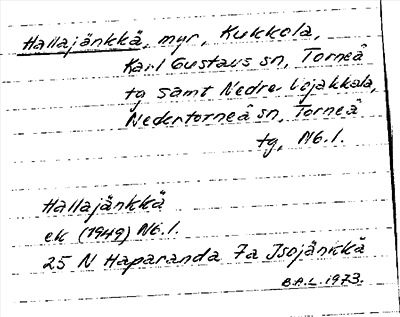 Hallajänkkä, myr, Kukkola,
Karl Gustavs sn, Torneå
tg samt Nedre Vojakkala,
Nedertorneå sn, Torneå
tg, Nb.l.
Hallajänkkä
ek (1949) Nb.l.
25 N Haparanda 7a Isojänkkä
B.A.L. 1973.